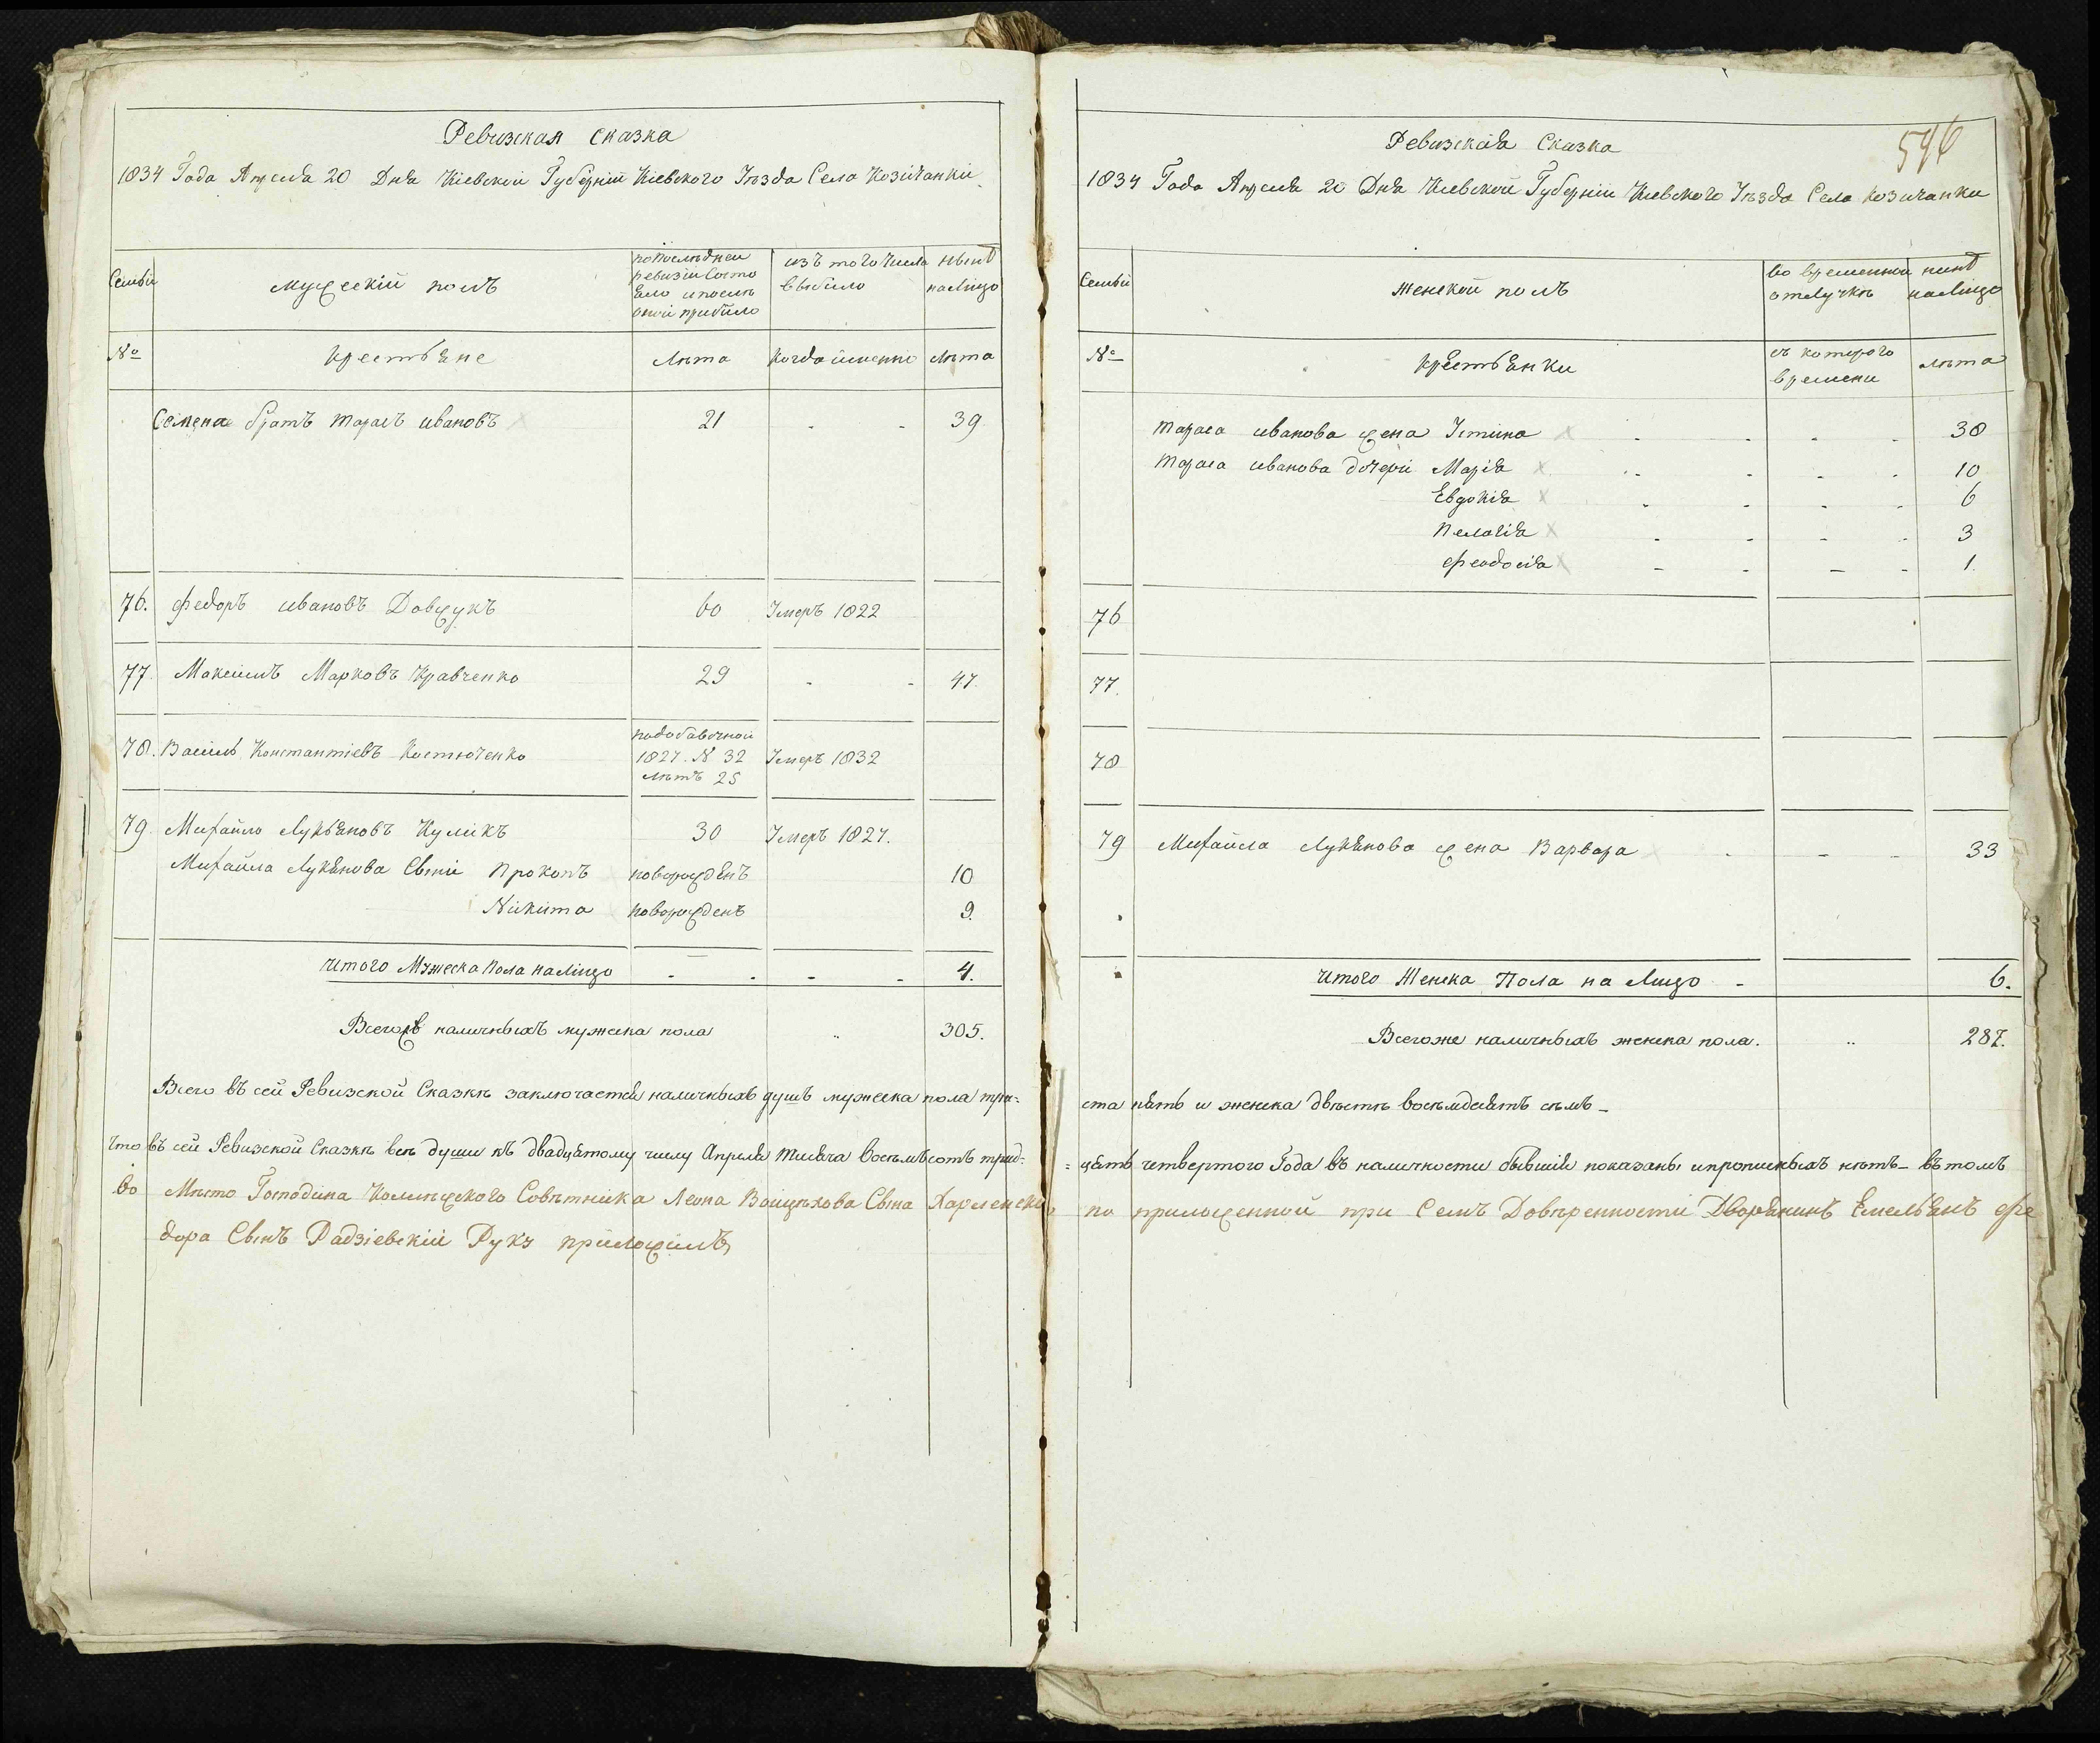 Ревизская сказка
1834 Года Апреля 20 Дня Кіевской Губерніи Кіевского Уезда Села Козичанки
Семьи
мужескій полъ
по последней ревизіи Состояло и после оной прибыло
изъ того числа выбыло
ныне налицо
№
крестьяне
лета
когда именно
лета
Семена братъ тарасъ ивановъ 21 - - 39
76. федоръ ивановъ Довжукъ 60 Умеръ 1822
77. Максимъ Марковъ Кравченко 29 - - 47.
78. Василь Константіевъ Костюченко подобавочной 1827. № 32 летъ 25 Умеръ 1832
79. Михайло Лукьяновъ Куликъ 30 Умеръ 1827.
Михайла Лукянова Сыни Прокопъ новорожденъ 10
Никита новорожденъ 9.
Итого Мужеска Пола налицо - - - - 4.
Всегожъ наличныхъ мужеска пола 305.
Всего въ сей Ревизской Сказкѣ заключается наличныхъ душъ мужеска пола три-
Что въ сей Ревизской Сказкѣ всѣ души къ двадцятому числу Апреля тисяча восѣмъсотъ трид-
во Мѣсто Господина Колежского Совѣтника Леона Войцѣхова Сына
дора Сынъ Радзіевскій Руку приложилъ
546
Ревизская Сказка
1834 Года Апреля 20 Дня Киевской Губерніи Киевского Уезда Села Козичанки
Семьи
женской полъ
во временной отлучкѣ
ныне налицо
№
крестьянки
съ которого времени
лѣта
тараса иванова жена Устина - - - - 30
тараса иванова дочери Марія - - - - 10
Евдокія - - - - 6
Пелагія - - - - 3
Феодосія - - - - 1.
76
77.
78
79 Михайла Лукянова жена Варвара - - - 33
Итого Женска Пола на Лицо - 6.
Всегоже наличныхъ женска пола. 287.
ста пять и женска двѣстѣ восѣмдсятъ сѣмъ -
цять четвертого Года въ наличности бывшія показаны ипрописныхъ нѣтъ - въ томъ
по приложенной при Семъ Довѣренности Дворянинъ Емельянъ фе